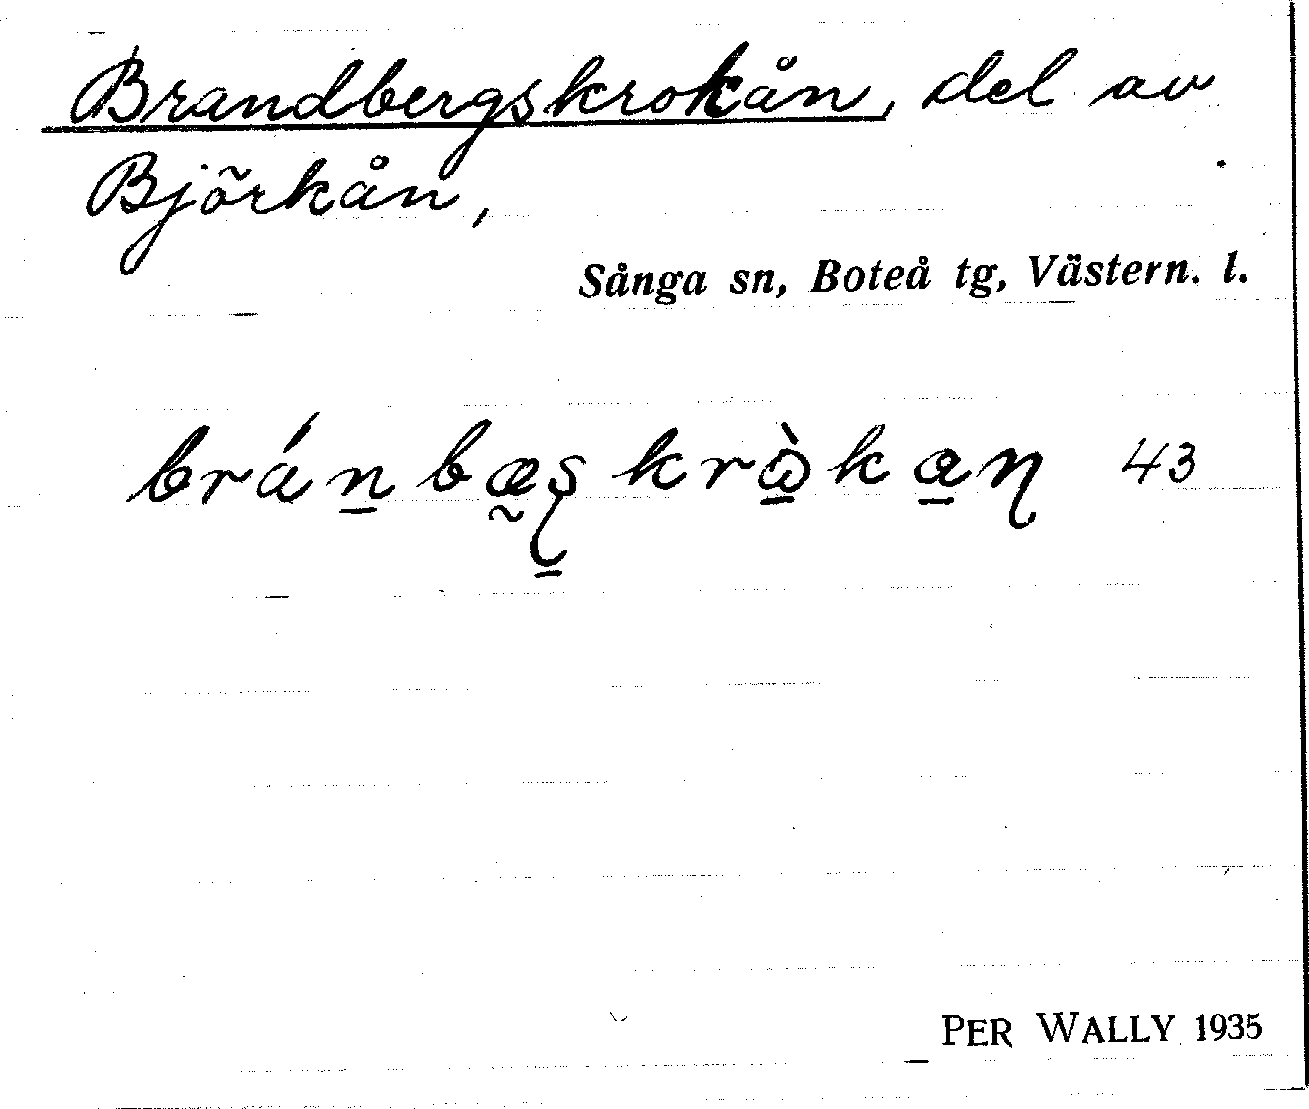 Brandbergskrokån, del av
Björkån,
Sånga sn, Boteå tg, Västern. l.
brán̠bæ̰ʂ̠krɷ̠̀ka̠ɳ 43
PER WALLY 1935